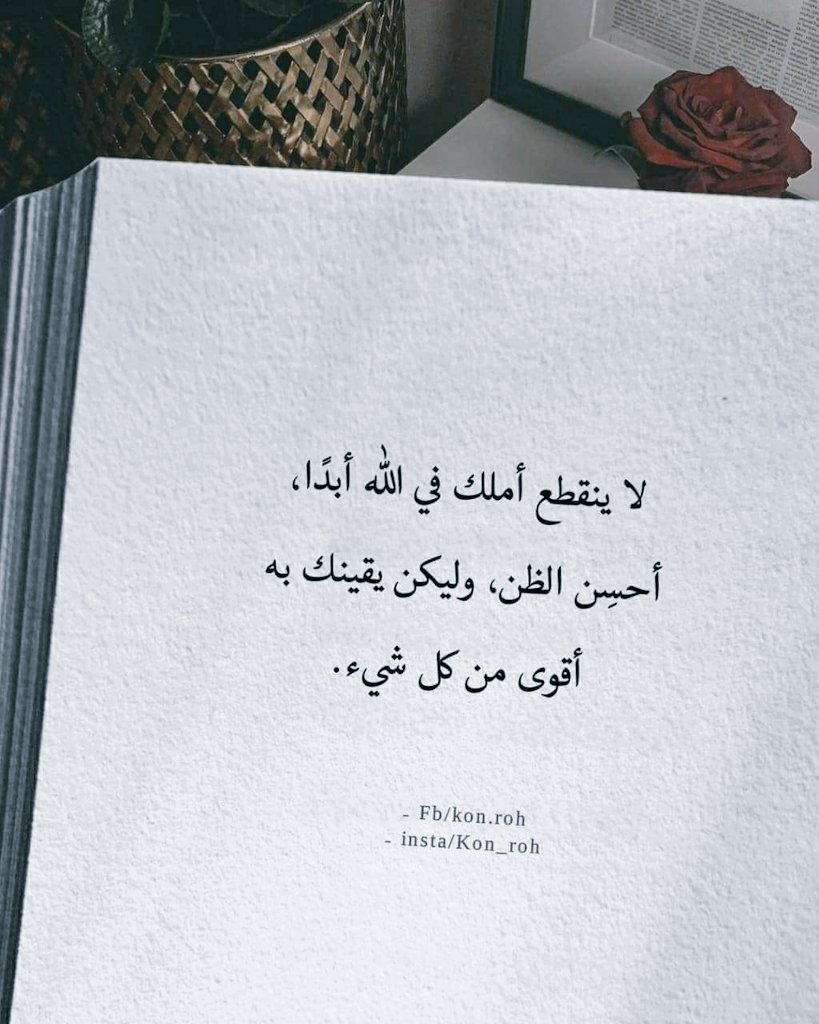 لا ينقطع أملك في الله أبدًا،
أحسِن الظن، وليكن يقينك به
أقوى من كل شيء.
- Fb/kon.roh
- insta/Kon_roh